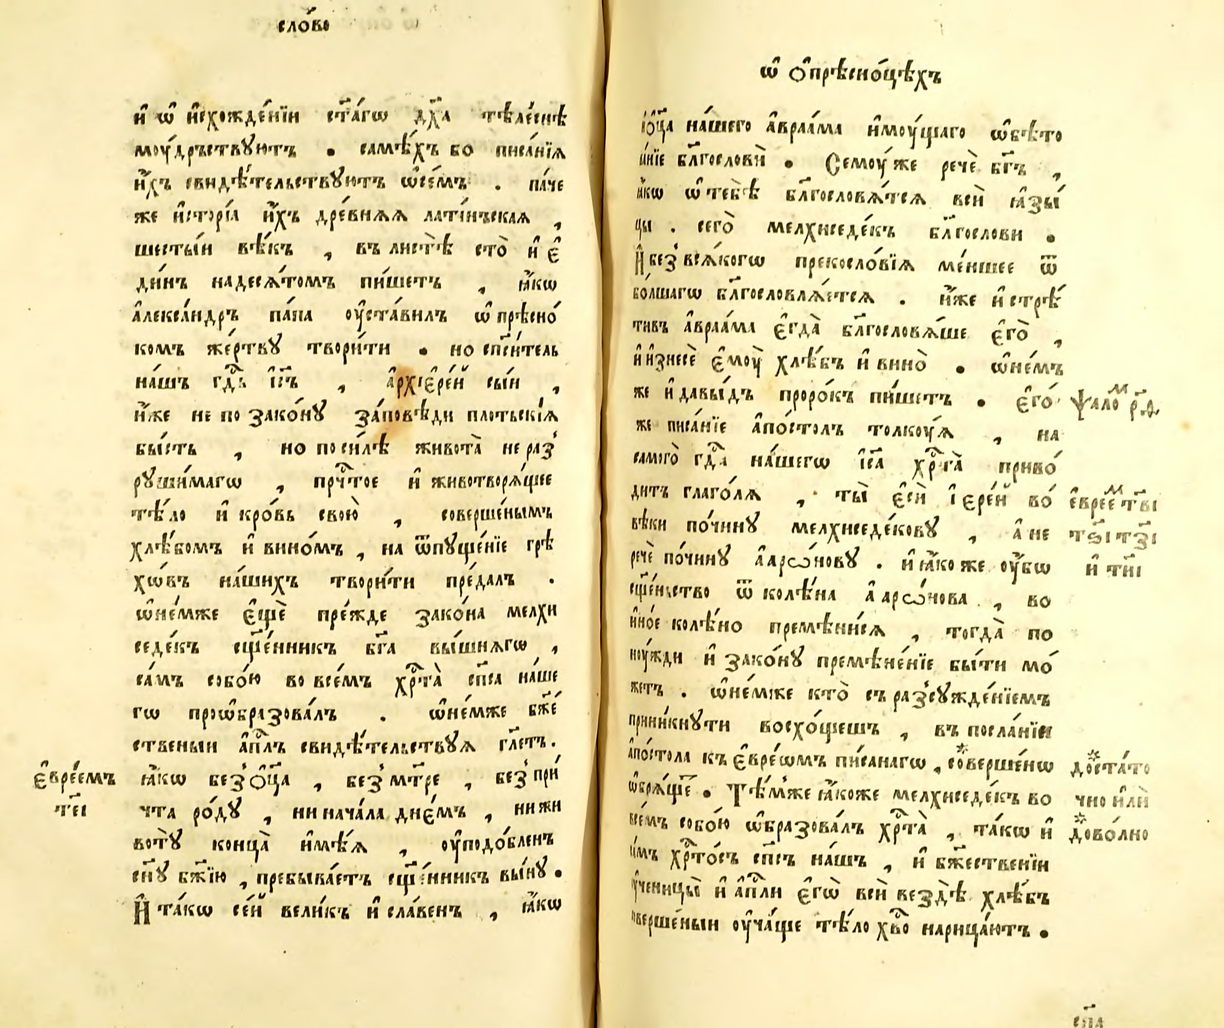 сло́во
и҆ ѡ҆ и҆схожде́нїи ст҃а́гѡ дх҃а тѣле́снѣ
моу́дрьствуютъ . самѣ́хъ бо писа́нїѧ
и҆́хъ свидѣ́тельствуютъ ѡ҆се́мъ . па́че
же и҆сторі́а и҆́хъ дре́внѧѧ лати́ньскаѧ ,
шесты́и вѣ́къ , въ ли́стѣ сто̀ и҆ є҆
ди́нъ надесѧ́томъ пи́шетъ , ꙗ҆́кѡ
а҆леѯа́ндръ па́па оу҆ста́вилъ ѡ҆прѣсно́
комъ же́ртву твори́ти . но сп҃си́тель
на́шъ гд҇ь і҆с҃ъ , а҆рхїе҆ре́й сы́и ,
и҆́же не по зако́ну за́повѣди пло́тьскїѧ
бы́сть , но по си́лѣ живота̀ не раз̾
руши́магѡ , прч҇тое и҆ животворѧ́щее
тѣ́ло и҆ кро́вь свою̀ , соверше́нымъ
хлѣ́бомъ и҆ вино́мъ , на ѿпуще́нїе грѣ
хѡ́въ на́шихъ твори́ти пре́далъ .
ѡ҆не́мже є҆щѐ пре́жде зако́на мелхи
седе́къ сщ҃е́нникъ бг҃а вы́шнѧгѡ ,
са́мъ собо́ю во все́мъ хрⷭ҇та̀ сп҃са на́ше
гѡ проѡ҆бразова́лъ . ѡ҆не́мже бж҃е́
ственыи а҆пⷭ҇лъ свидѣ́тельствуѧ гл҃етъ .
є҆вре́емъ
т҃єі
ꙗ҆́кѡ без̾ ѻ҆ц҃а , без̾ мт҃ре , без̾ при́
чта ро́ду , ни нача́ла дне́мъ , ни жи
воту̀ конца̀ и҆мѣ́ѧ , оу҆подо́бленъ
сн҃у бж҃їю , пребыва́етъ сщ҃е́нникъ вы́ну .
И҆ та́кѡ се́й вели́къ и҆ сла́венъ , ꙗ҆́кѡ
ѡ҆ ѻ҆прѣсно́цѣхъ
ѻ҆ц҃а на́шего а҆враа́ма и҆моу́щаго ѡ҆бѣто
ва́нїе блг҃ослови̂ . Семоу́ же речѐ бг҃ъ ,
ꙗ҆́кѡ ѡ҆ тебѣ̀ блг҃ословѧ́тсѧ всѝ ꙗ҆зы́
цы . сего̀ мелхиседе́къ блг҃ослови .
И҆ без̾ всѧ́когѡ прекосло́вїѧ ме́ншее ѿ
бо́лшагѡ блг҃ословлѧ́етсѧ . и҆́же и҆ стрѣ́
тивъ а҆враа́ма є҆гда̀ блг҃ословѧ́ше є҆го̀ ,
и҆ и҆знесѐ є҆моу̀ хлѣ́бъ и҆ вино̀ . ѡ҆не́мъ
же и҆ давы́дъ проро́къ пи́шетъ . є҆го́
же писа́нїе а҆по́столъ толку́ѧ , на
самого̀ гд҇а на́шегѡ і҆с҃а хрⷭ҇та̀ приво́
дитъ глаго́лѧ , ты̀ є҆сѝ і҆ере́й во́
вѣки по́чину мелхиседе́кову , а҆ не
речѐ по́чину а҆арѡ́нову . и҆ ꙗ҆́ко же оу҆́бѡ
сщ҃е́нство ѿ колѣ́на а҆арѡ́нова , во
и҆но́е колѣ́но премѣни́сѧ , тогда̀ по
ну́жди и҆ зако́ну премѣне́нїе бы́ти мо́
жетъ . ѡ҆не́мже кто̀ съ раз̾сужде́нїемъ
прини́кнути восхо́щешъ , въ посла́нїи
а҆по́стола къ є҆вре́ѡмъ пи́санагѡ , *соверше́нѡ
ѡ҆брѧ́щеши . Тѣ́мже ꙗ҆́коже мелхиседе́къ во
все́мъ собо́ю ѡ҆бразова́лъ хрⷭ҇та̀ , та́кѡ и҆
са́мъ хрⷭ҇то́съ сп҃съ на́шъ , и҆ бж҃е́ственїи
оу҆ченицы̀ и҆ а҆пⷭ҇ли є҆гѡ̀ всѝ вездѣ̀ хлѣ́бъ
соверше́ныи оу҆ча́ще тѣ́ло хв҃о нарица́ютъ .
ѱало́м р҃ѳ.
є҆вре́ем т҃ві
т҃ѕі т҃зі
и҆ т҃иі
*доста́то
чно и҆лѝ
*дово́лно